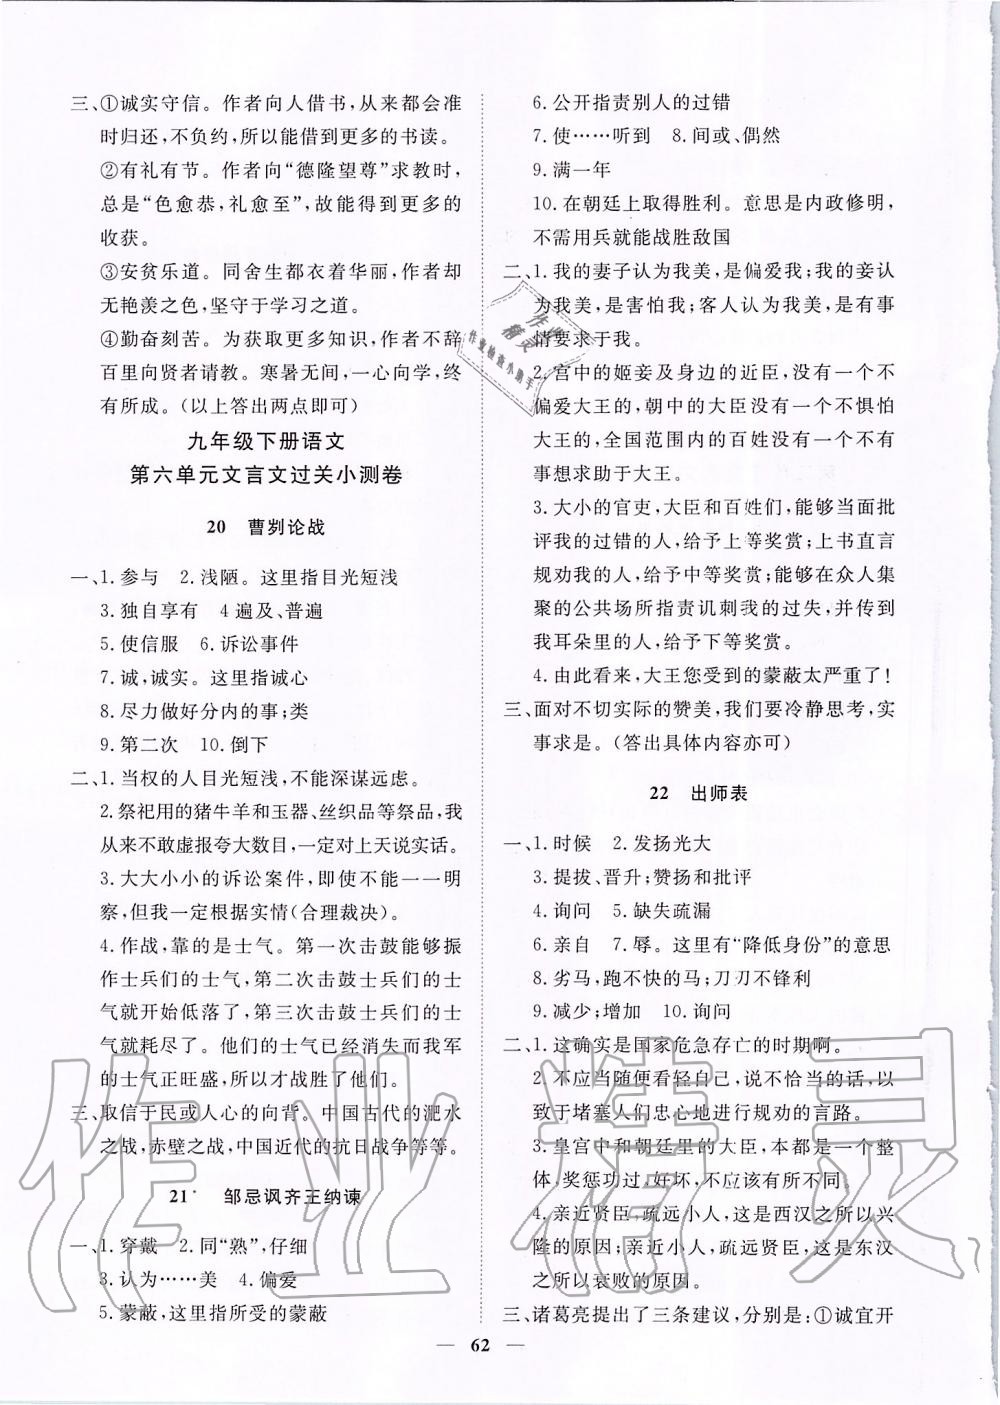 三、①诚实守信。作者向人借书,从来都会准
时归还,不负约,所以能借到更多的书读。
②有礼有节。作者向“德隆望尊”求教时,
总是“色愈恭,礼愈至”,故能得到更多的
收获。
③安贫乐道。同舍生都衣着华丽,作者却
无艳羡之色,坚守于学习之道。
④勤奋刻苦。为获取更多知识,作者不辞
百里向贤者请教。寒暑无间,一心向学,终
有所成。(以上答出两点即可)
九年级下册语文
第六单元文言文过关小测卷
20 曹刿论战
一、1.参与 2.浅陋。这里指目光短浅
3.独自享有 4遍及、普遍
5.使信服 6.诉讼事件
7.诚,诚实。这里指诚心
8.尽力做好分内的事;类
9.第二次 10.倒下
二、1.当权的人目光短浅,不能深谋远虑。
2.祭祀用的猪牛羊和玉器、丝织品等祭品,我
从来不敢虚报夸大数目,一定对上天说实话。
3.大大小小的诉讼案件,即使不能一一明
察,但我一定根据实情(合理裁决)。
4.作战,靠的是士气。第一次击鼓能够振
作士兵们的士气,第二次击鼓士兵们的士
气就开始低落了,第三次击鼓士兵们的士
气就耗尽了。他们的士气已经消失而我军
的士气正旺盛,所以才战胜了他们。
三、取信于民或人心的向背。中国古代的淝水
之战,赤壁之战,中国近代的抗日战争等等。
21 邹忌讽齐王纳谏
一、1.穿戴 2.同“熟”,仔细
3.认为……美 4.偏爱
5.蒙蔽,这里指所受的蒙蔽
6.公开指责别人的过错
7.使……听到 8.间或、偶然
9.满一年
10.在朝廷上取得胜利。意思是内政修明,
不需用兵就能战胜敌国
二、1.我的妻子认为我美,是偏爱我;我的妾认
为我美,是害怕我;客人认为我美,是有事
情要求于我。
2.宫中的姬妾及身边的近臣,没有一个不
偏爱大王的,朝中的大臣没有一个不惧怕
大王的,全国范围内的百姓没有一个不
是想求助于大王。
3.大小的官吏,大臣和百姓们,能够当面批
评我的过错的人,给予上等奖赏;上书直言
规劝我的人,给予中等奖赏;能够在众人集
聚的公共场所指责讥刺我的过失,并传到
我耳朵里的人,给予下等奖赏。
4.由此看来,大王您受到的蒙蔽太严重了!
三、面对不切实际的赞美,我们要冷静思考,实
事求是。(答出具体内容亦可)
22 出师表
一、1.时候 2.发扬光大
3.提拔、晋升;赞扬和批评
4.询问 5.缺失疏漏
6.亲自 7.辱。这里有“降低身份”的意思
8.劣马,跑不快的马;刀刃不锋利
9.减少;增加 10.询问
二、1.这确实是国家危急存亡的时期啊。
2.不应当随便看轻自己,说不恰当的话,以
致于堵塞人们忠心地进行规劝的言路。
3.皇宫中和朝廷里的大臣,本都是一个整
体,奖惩功过,好坏,不应该有所不同。
4.亲近贤臣,疏远小人,这是西汉之所以兴
隆的原因;亲近小人,疏远贤臣,这是东汉
之所以衰败的原因。
三、诸葛亮提出了三条建议,分别是:①诚宜开
62
作业精灵
作业检查小助手
作业精灵